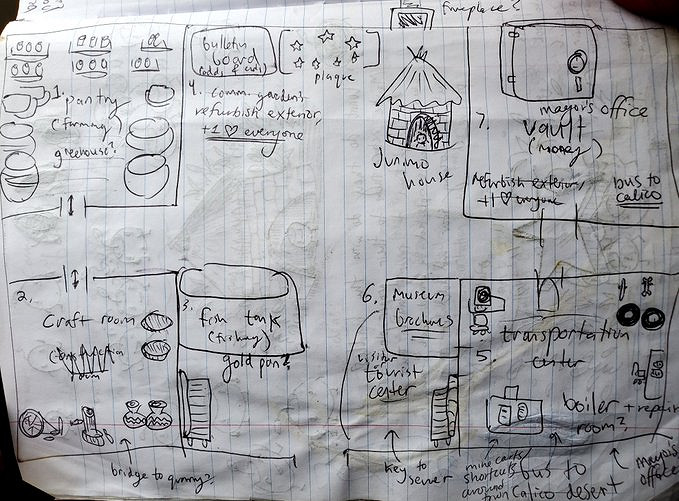 fireplace?
bulletin
board
(odds & ends)
plaque
4. comm. gardens
refurbish exterior,
+1 ♡ everyone
1. pantry
(farming)
greenhouse?
Junimo
house
mayor's office
7.
vault
(money)
refurbish exterior,
+1 ♡ everyone
bus to
calico
2.
craft room
room
3. fish tank
(fishing)
gold pan?
6. museum
brochures
visitor
tourist
center
transportation
center
5.
boiler
room?
+ repair
bridge to quarry?
key to
sewer
mine carts
shortcuts
around
town
bus to
calico desert
mayor's
office